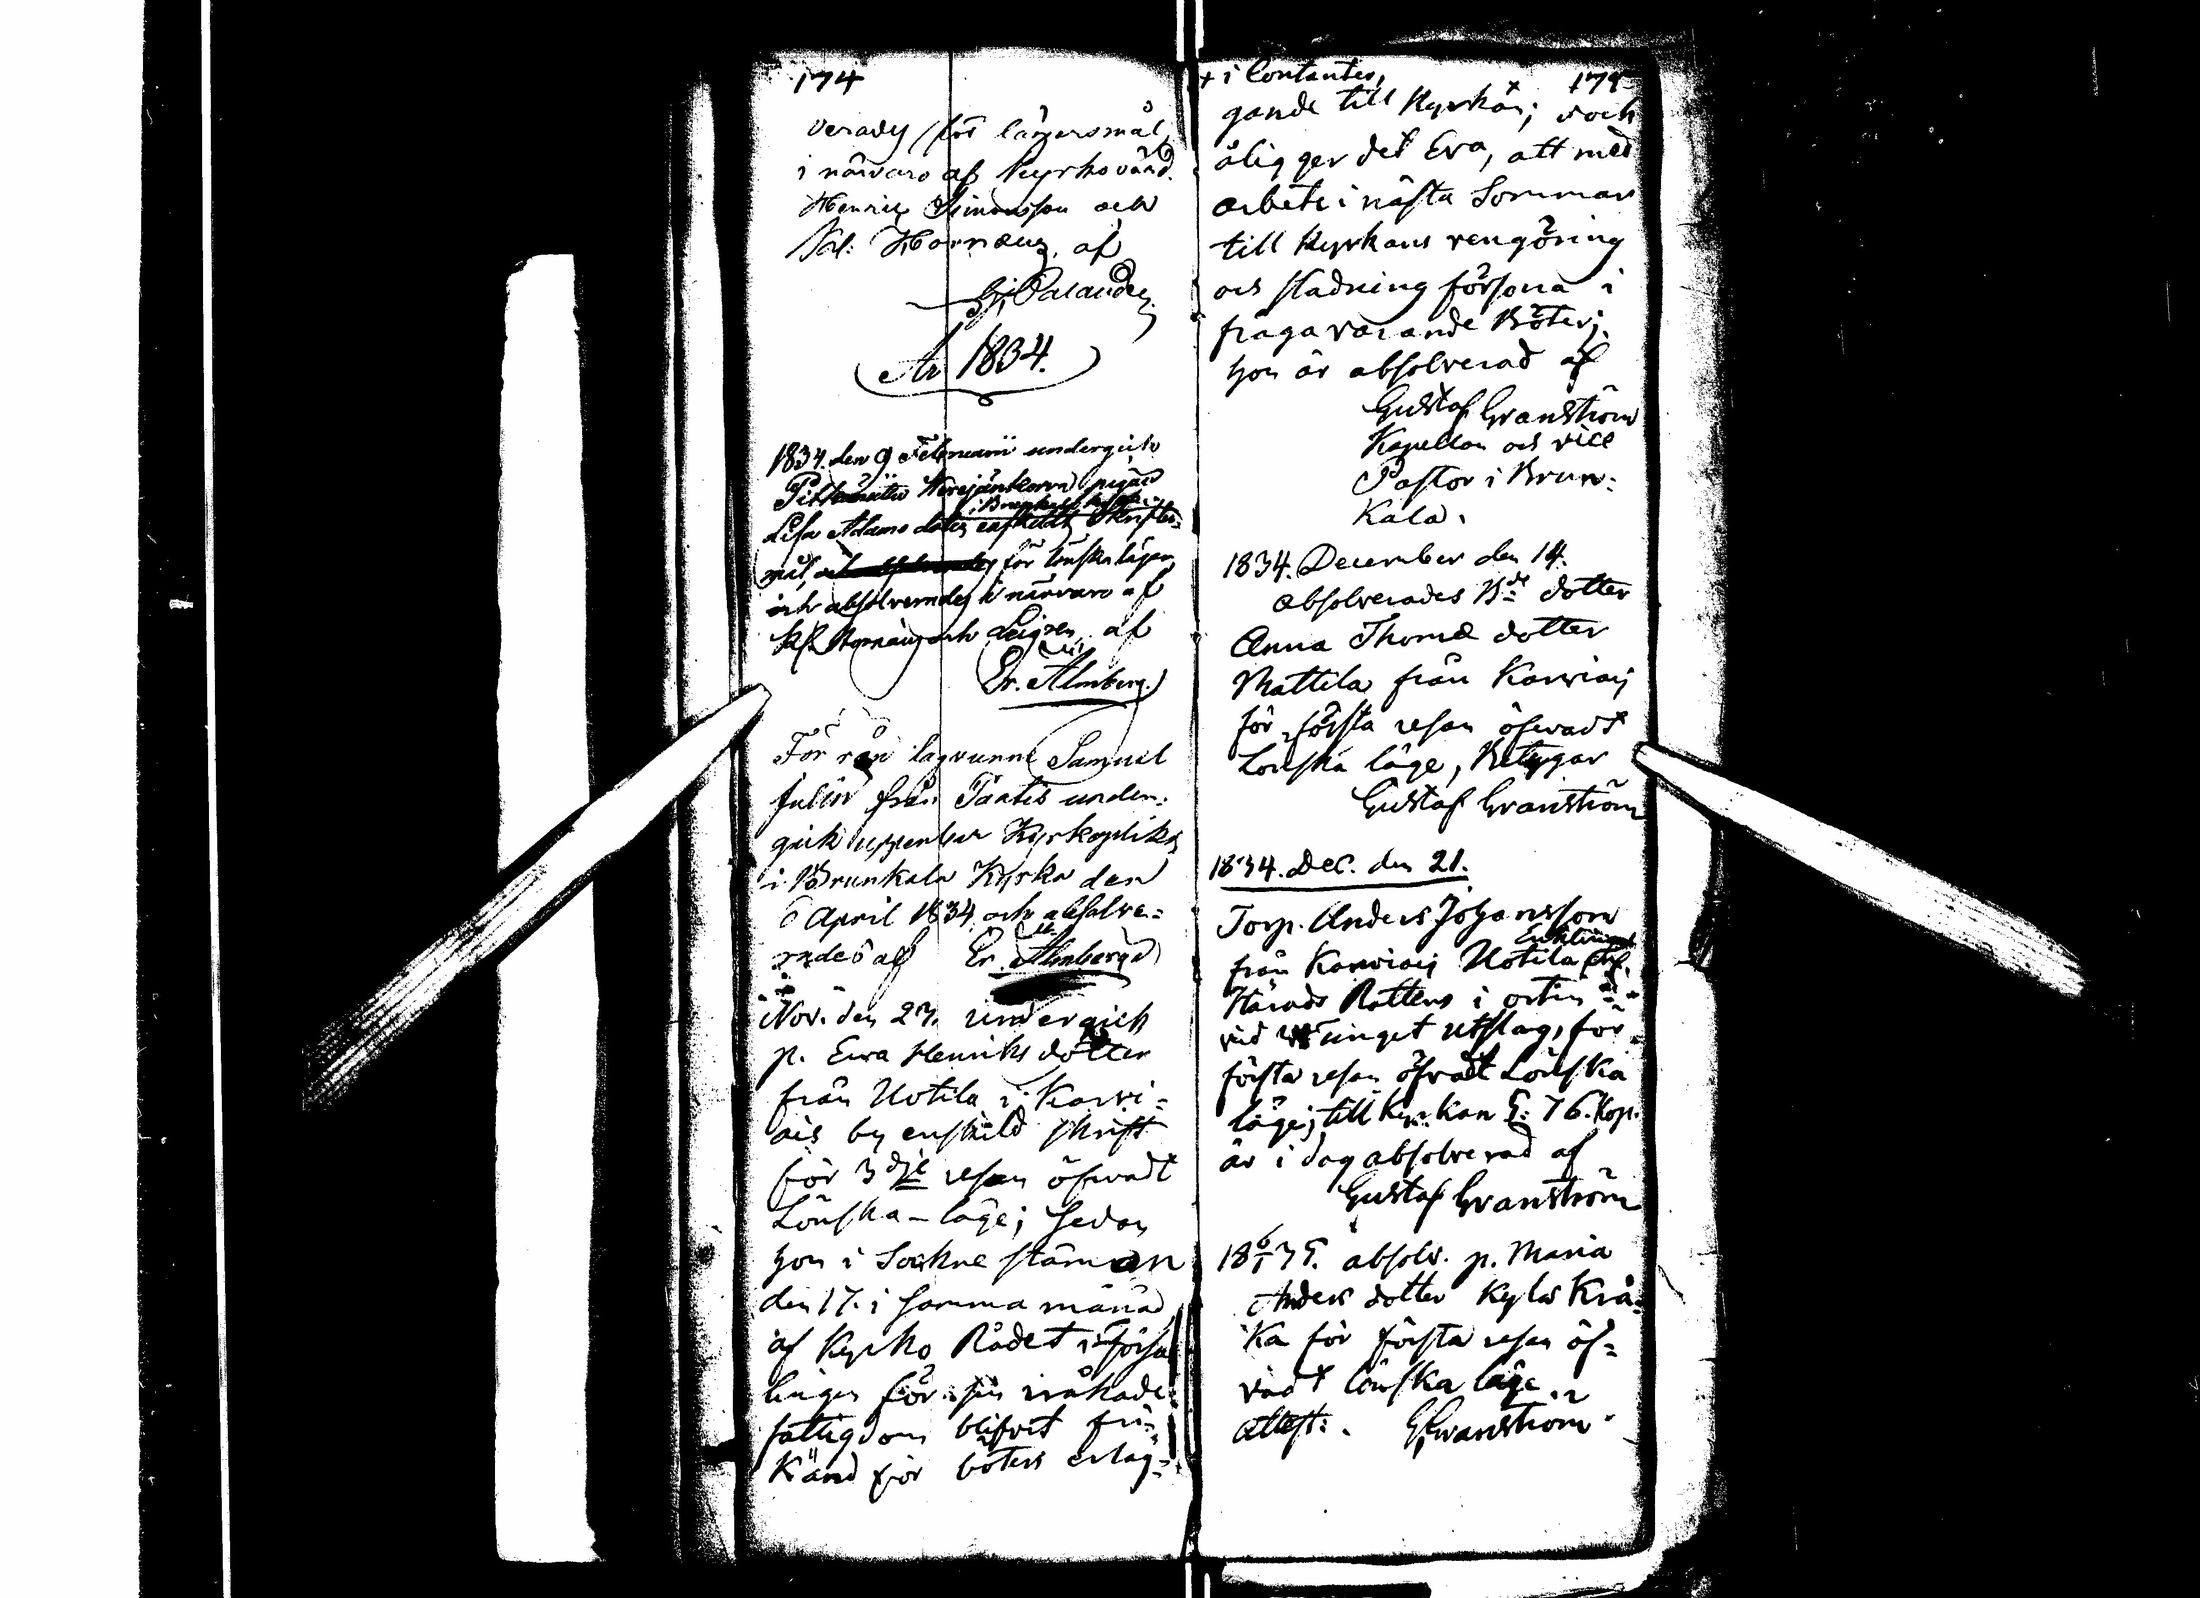 174
verades för lägersmål,
i närvaro af Kyrkovärd.
Henric Simonsson och
af
G. Palander
År 1834.
1834. den 9 Februarii undergick
pigan
Lisa Adams dotter enskildt Skrifter-
mål, för lönska läger
och absolverades i närvaro af
och af
Er. Almberg.
För rån lagvunne Samuel
Julin från Täntis under-
gick uppenbar Kyrkoplikt
i Brunkala Kyrka den
6 April 1834 och absolve-
rades af Er. Almberg
Nov. den 23. undergick
p. Eva Henriks dotter
från Uotila i Karvi-
ais by enskild skrift
för 3dje resan öfvadt
Lönska-läge; sedan
hon i Sockne stäman
den 17. i samma månad
af Kyrko Rådet i försa-
lingen för sin råkade
fattigdom blifvit fri-
känd för böters erläg-
+ i Contanter, 175
gande till Kyrkan; +och
åligger det Eva, att med
arbete i nästa Sommar
till Kyrkans rengöring
och stadning försona i
fråga varande Böter;
hon är absolverad af
Gustaf Granström
Kapellan och vice
Pastor i Brun-
kala.
1834. December den 14.
absolverades Bde dotter
Anna Thomæ dotter
Mattila från Karviais
för första resan öfvadt
Lönska läge, Betygar
Gustaf Granström
1834. Dec. den 21.
Torp. Anders Johansson
från Karviais Uotila enl.
Härads Rättens i orten
vid tinget utslag, för
första resan öfvadt Lönska
läge; till Kyrkan 5: 76. Kop.
är i dag absolverad af
Gustaf Granström
18 6/1 35. absolv. p. Maria
Anders dotter Kylä Krå-
ka för första resan öf-
vadt lönska läge
attest: G. Granström